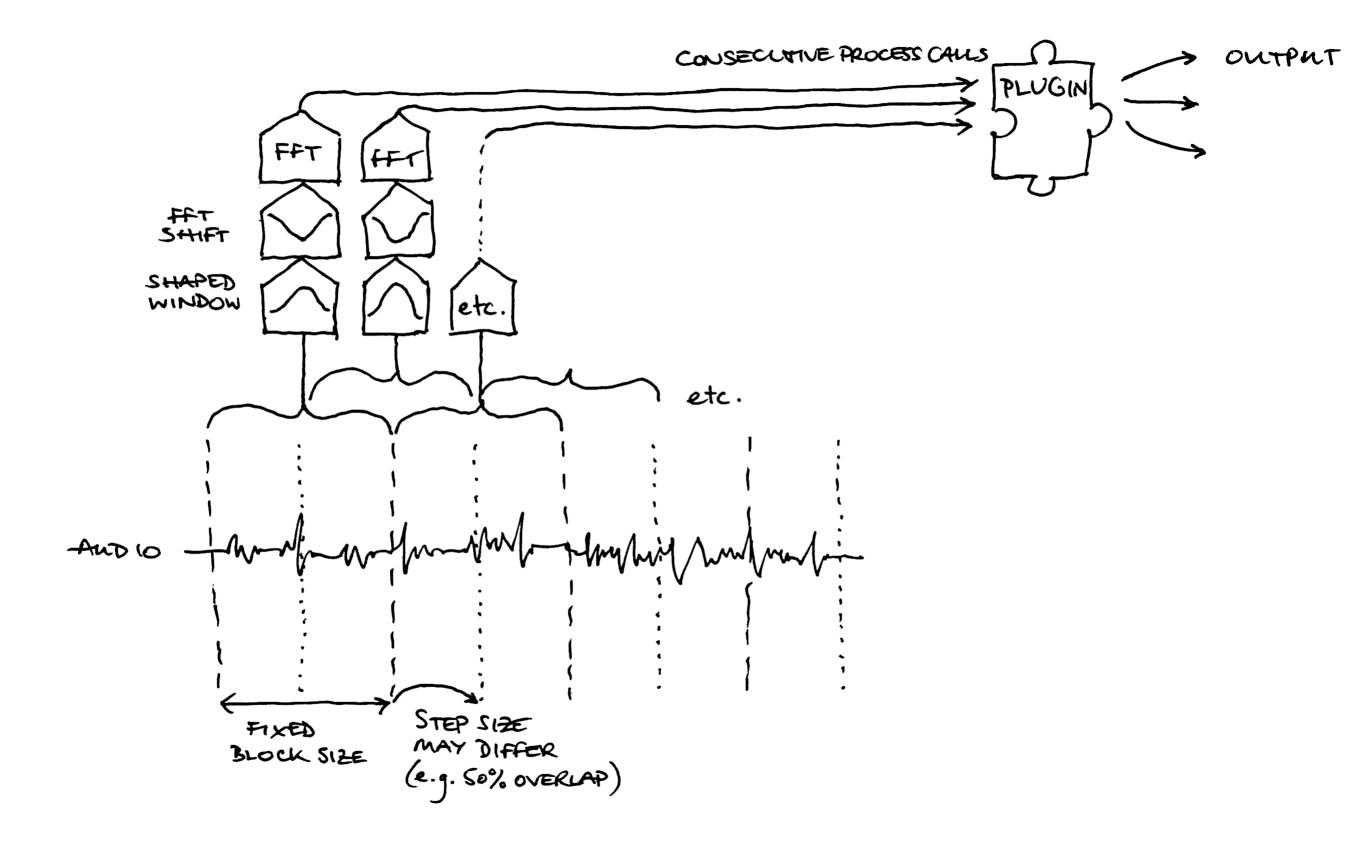 CONSECUTIVE PROCESS CALLS
OUTPUT
PLUGIN
FFT
FFT
FFT
SHIFT
SHAPED
WINDOW
etc.
etc.
AUDIO
FIXED
BLOCK SIZE
STEP SIZE
MAY DIFFER
(e.g. 50% OVERLAP)